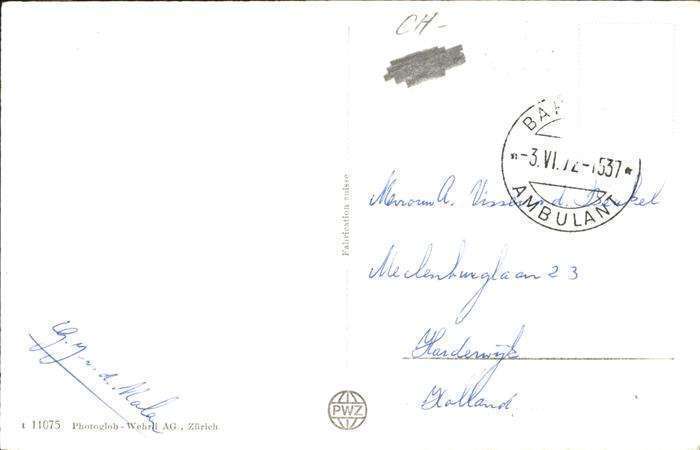 CH-
BÄ
-3.VI.72-1537
AMBULANT
Fabrication suisse
Mevrouw A. Visser v.d.
Mecklenburglaan 23
Harderwijk
Holland.
G.J. v.d. Malen
PWZ
t 11075 Photoglob-Wehrli AG., Zürich